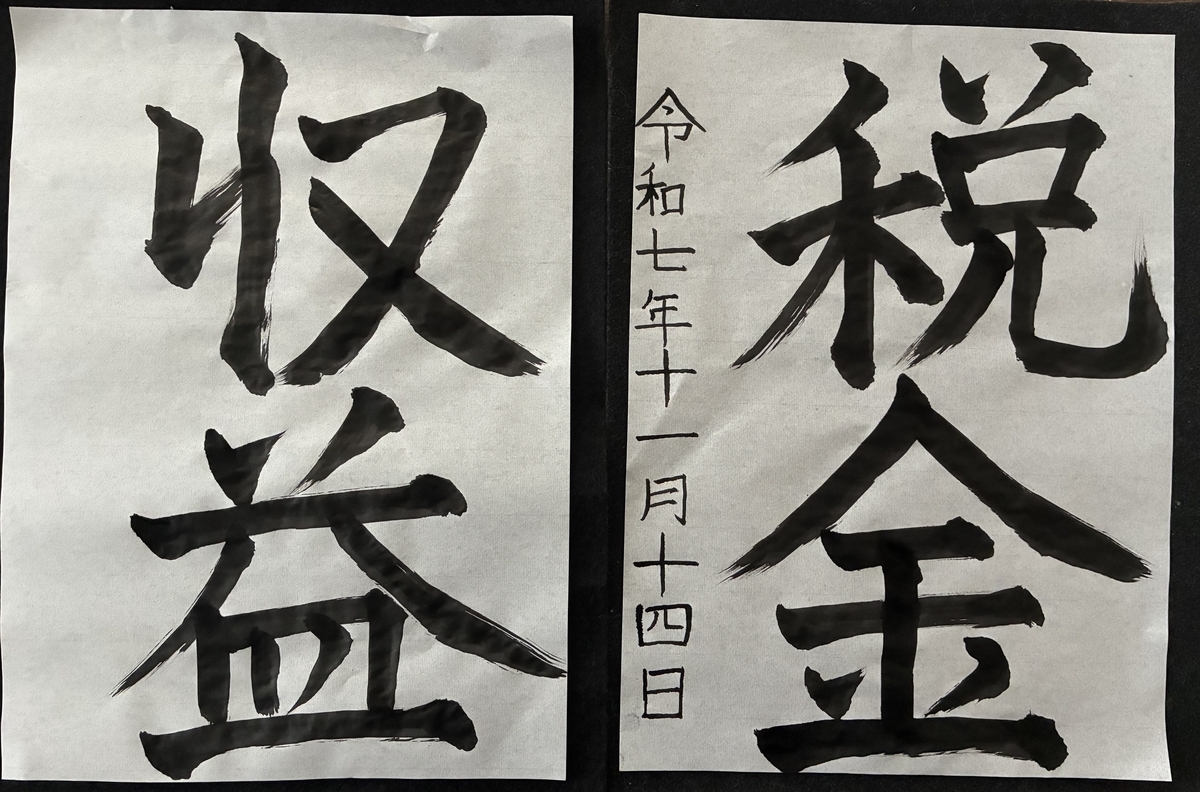 税金
令和七年十一月十四日
収益